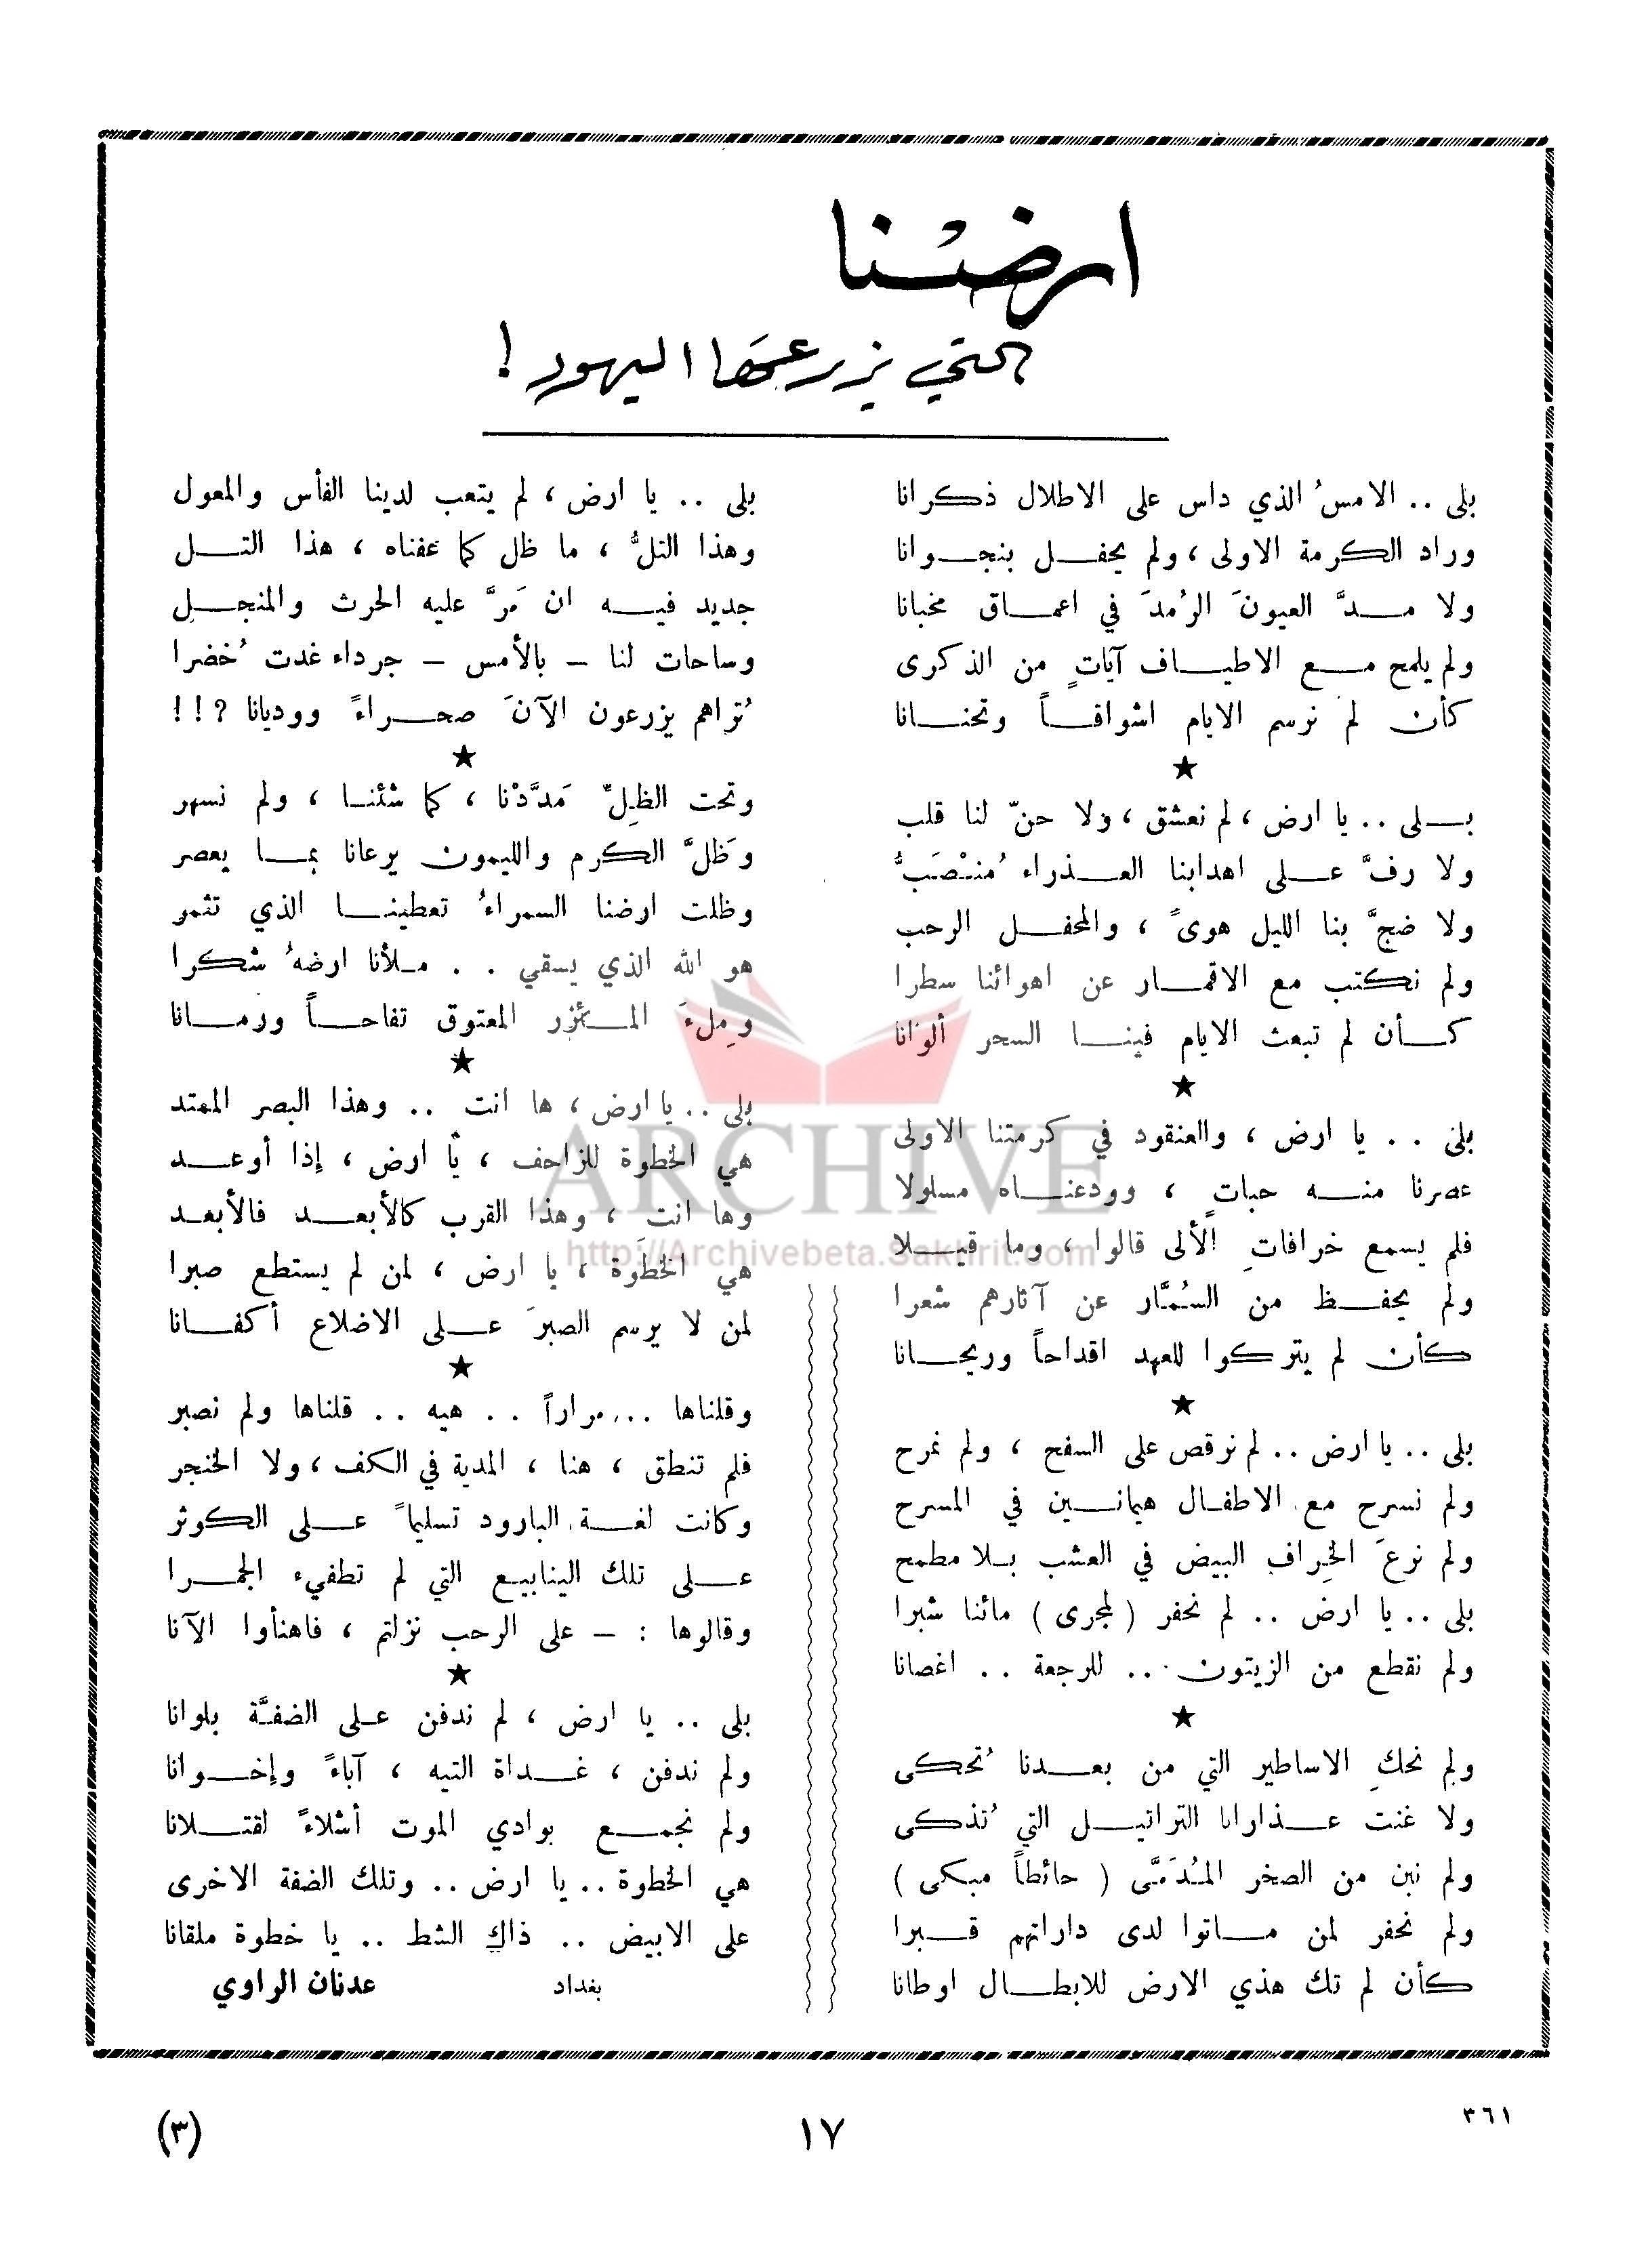 ارضنا
التي يزرعها اليهود !
بلى . . الامسُ الذي داس على الاطلال ذكرانا
وراد الكرمة الاولى ، ولم يحفل بنجوانا
ولا مدَّ العيونَ الرُمدَ في اعماق مخبانا
ولم يلمح مع الاطياف آياتٍ من الذكرى
كأن لم نرسم الايام اشواقاً وتحنانا
★
بلى . . يا ارض ، لم نعشق ، ولا حنّ لنا قلب
ولا رفَّ على اهدابنا العذراء مُنْصَبُّ
ولا ضجَّ بنا الليل هوىً ، والمحفل الرحب
ولم نكتب مع الاقمار عن اهوائنا سطرا
كأن لم تبعث الايام فينا السحر ألوانا
★
بلى . . يا ارض ، والعنقود في كرمتنا الاولى
عصرنا منه حباتٍ ، وودعناه مسلولا
فلم يسمع خرافاتِ الألى قالوا ، وما قيلا
ولم يحفظ من السُمَّار عن آثارهم شعرا
كأن لم يتركوا للعهد اقداحاً وريحانا
★
بلى . . يا ارض . . لم نرقص على السفح ، ولم نمرح
ولم نسرح مع الاطفال هيمانين في المسرح
ولم نرعَ الخِراف البيض في العشب بلا مطمح
بلى . . يا ارض . . لم نحفر ( لمجرى ) مائنا شبرا
ولم نقطع من الزيتون . . . للرجعة . . اغصانا
★
ولم نحكِ الاساطير التي من بعدنا تُحكى
ولا غنت عذارانا التراتيل التي تُذكى
ولم نبن من الصخر المُدَمَّى ( حائطاً مبكى )
ولم نحفر لمن ماتوا لدى داراتهم قبرا
كأن لم تك هذي الارض للابطال اوطانا
بلى . . يا ارض ، لم يتعب لدينا الفأس والمعول
وهذا التلُّ ، ما ظل كما عفناه ، هذا التل
جديد فيه ان مَرَّ عليه الحرث والمنجلِ
وساحات لنا – بالأمس – جرداء غدت خُضرا
تُراهم يزرعون الآنَ صحراءً ووديانا ؟!!
★
وتحت الظِلّ مَدَّدْنا ، كما شئنا ، ولم نسهر
وَظلَّ الكرم والليمون يرعانا بما يعصر
وظلت ارضنا السمراءُ تعطينا الذي تثمر
هو الله الذي يسقي . . ملأنا ارضهُ شكرا
ومِلءَ المئزر المعتوق تفاحاً ورمانا
★
بلى . . يا ارض ، ها انت . . وهذا البصر الممتد
هي الخطوة للزاحف ، يا ارض ، إذا أوعد
وها انت ، وهذا القرب كالأبعد فالأبعد
هي الخطوة ، يا ارض ، لمن لم يستطع صبرا
لمن لا يرسم الصبرَ على الاضلاع أكفانا
★
وقلناها . . . مراراً . . هيه . . قلناها ولم نصبر
فلم تنطق ، هنا ، المدية في الكف ، ولا الخنجر
وكانت لغة البارود تسليماً على الكوثر
على تلك الينابيع التي لم تطفيء الجمرا
وقالوها : – على الرحب نزلتم ، فاهنأوا الآنا
★
بلى . . يا ارض ، لم ندفن على الضفَّة بلوانا
ولم ندفن ، غداة التيه ، آباءً وإخوانا
ولم نجمع بوادي الموت أشلاءً لقتلانا
هي الخطوة . . يا ارض . . وتلك الضفة الاخرى
على الابيض . . ذاك الشط . . يا خطوة ملقانا
بغداد عدنان الراوي
ARCHIVE
http://Archivebeta.Sakhrit.com
٣٦١
١٧
(٣)